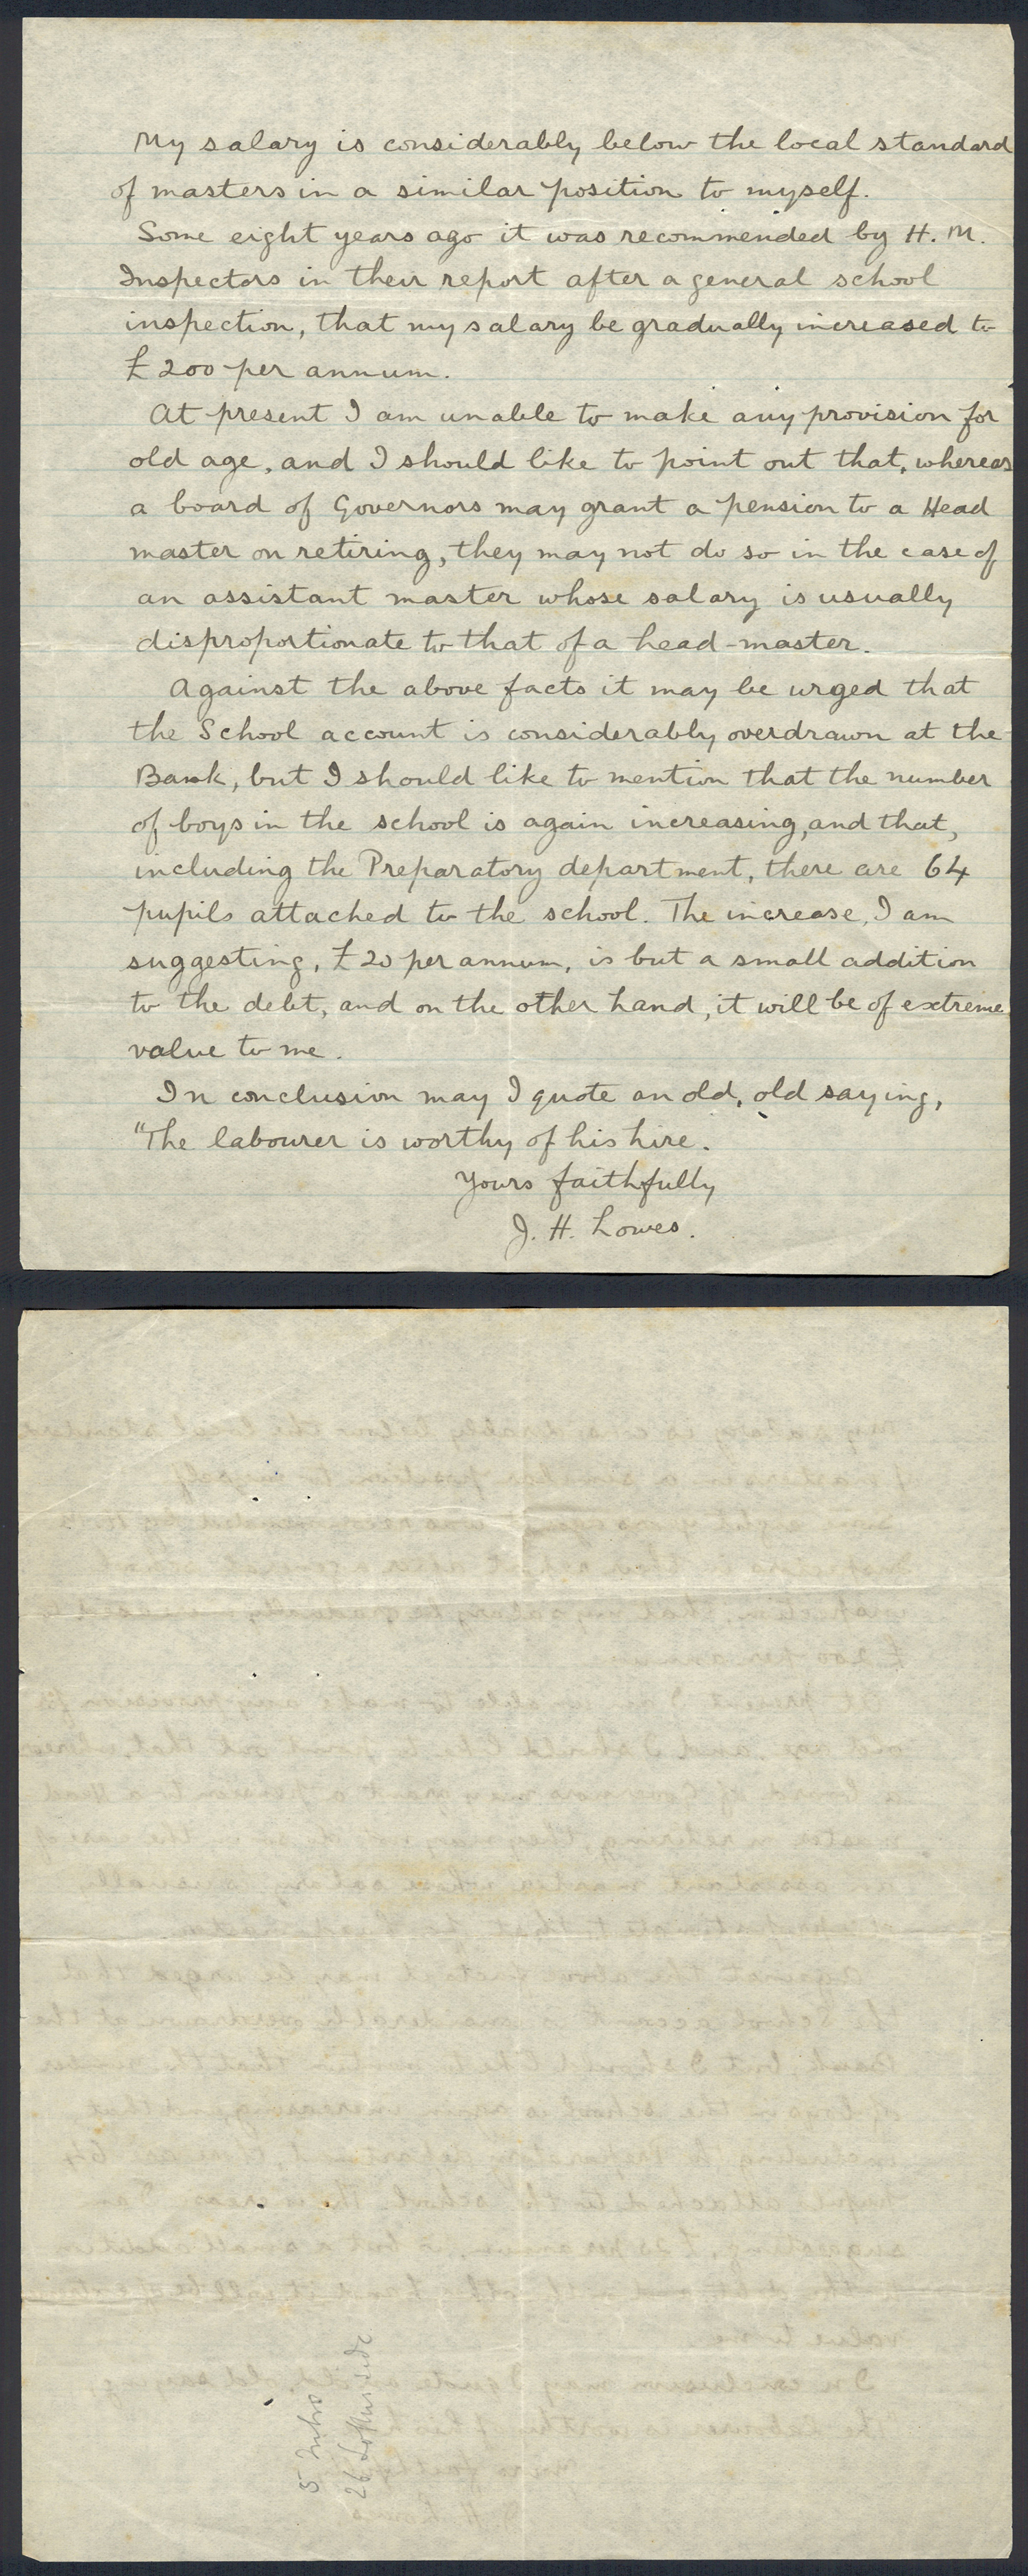 My salary is considerably below the local standard
of masters in a similar position to myself.
Some eight years ago it was recommended by H. M.
Inspectors in their report after a general school
inspection, that my salary be gradually increased to
£200 per annum.
At present I am unable to make any provision for
old age, and I should like to point out that, whereas
a board of Governors may grant a pension to a Head
master on retiring, they may not do so in the case of
an assistant master whose salary is usually
disproportionate to that of a head-master.
Against the above facts it may be urged that
the School account is considerably overdrawn at the
Bank, but I should like to mention that the number
of boys in the school is again increasing, and that,
including the Preparatory department, there are 64
pupils attached to the school. The increase, I am
suggesting, £20 per annum, is but a small addition
to the debt, and on the other hand, it will be of extreme
value to me.
In conclusion may I quote an old, old saying,
"The labourer is worthy of his hire.
Yours faithfully
J. H. Lowes.
5
26